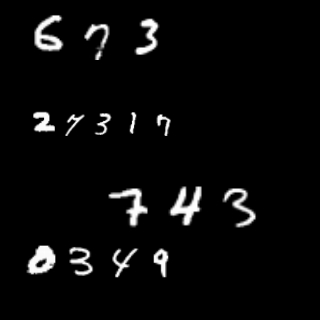 673
27317
743
0349